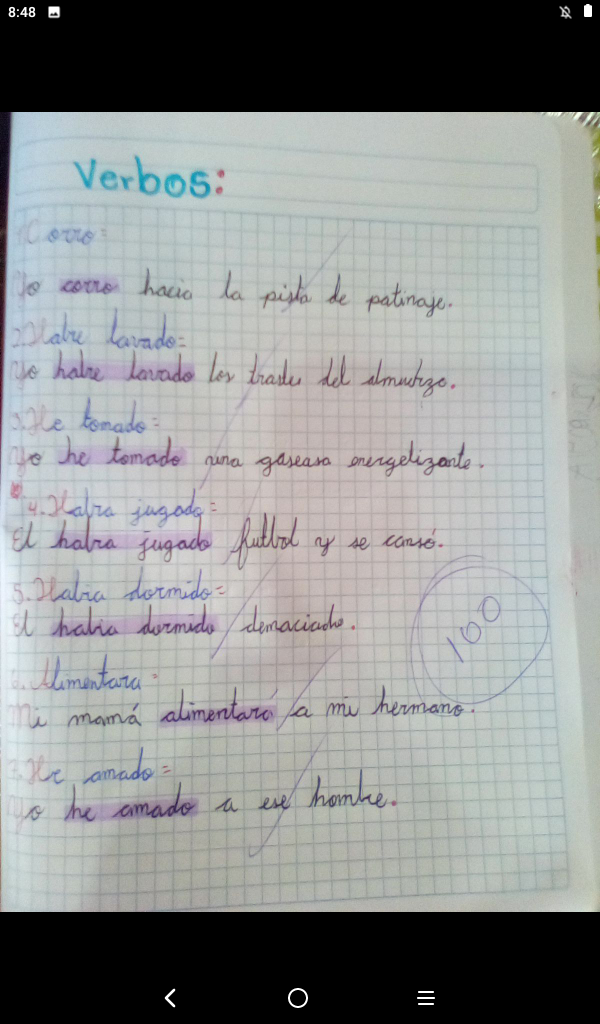 8:48
Verbos:
1. Corro:
Yo corro hacia la pista de patinaje.
2. Habre lavado:
Yo habre lavado los trastes del almuerzo.
3. He tomado:
Yo he tomado una gaseasa energetizante.
4. Habra jugado:
El habra jugado futbol y se cansó.
5. Habia dormido:
El habia dormido demaciado.
100
6. Alimentara:
Mi mamá alimentará a mi hermano.
7. He amado:
Yo he amado a ese hombre.